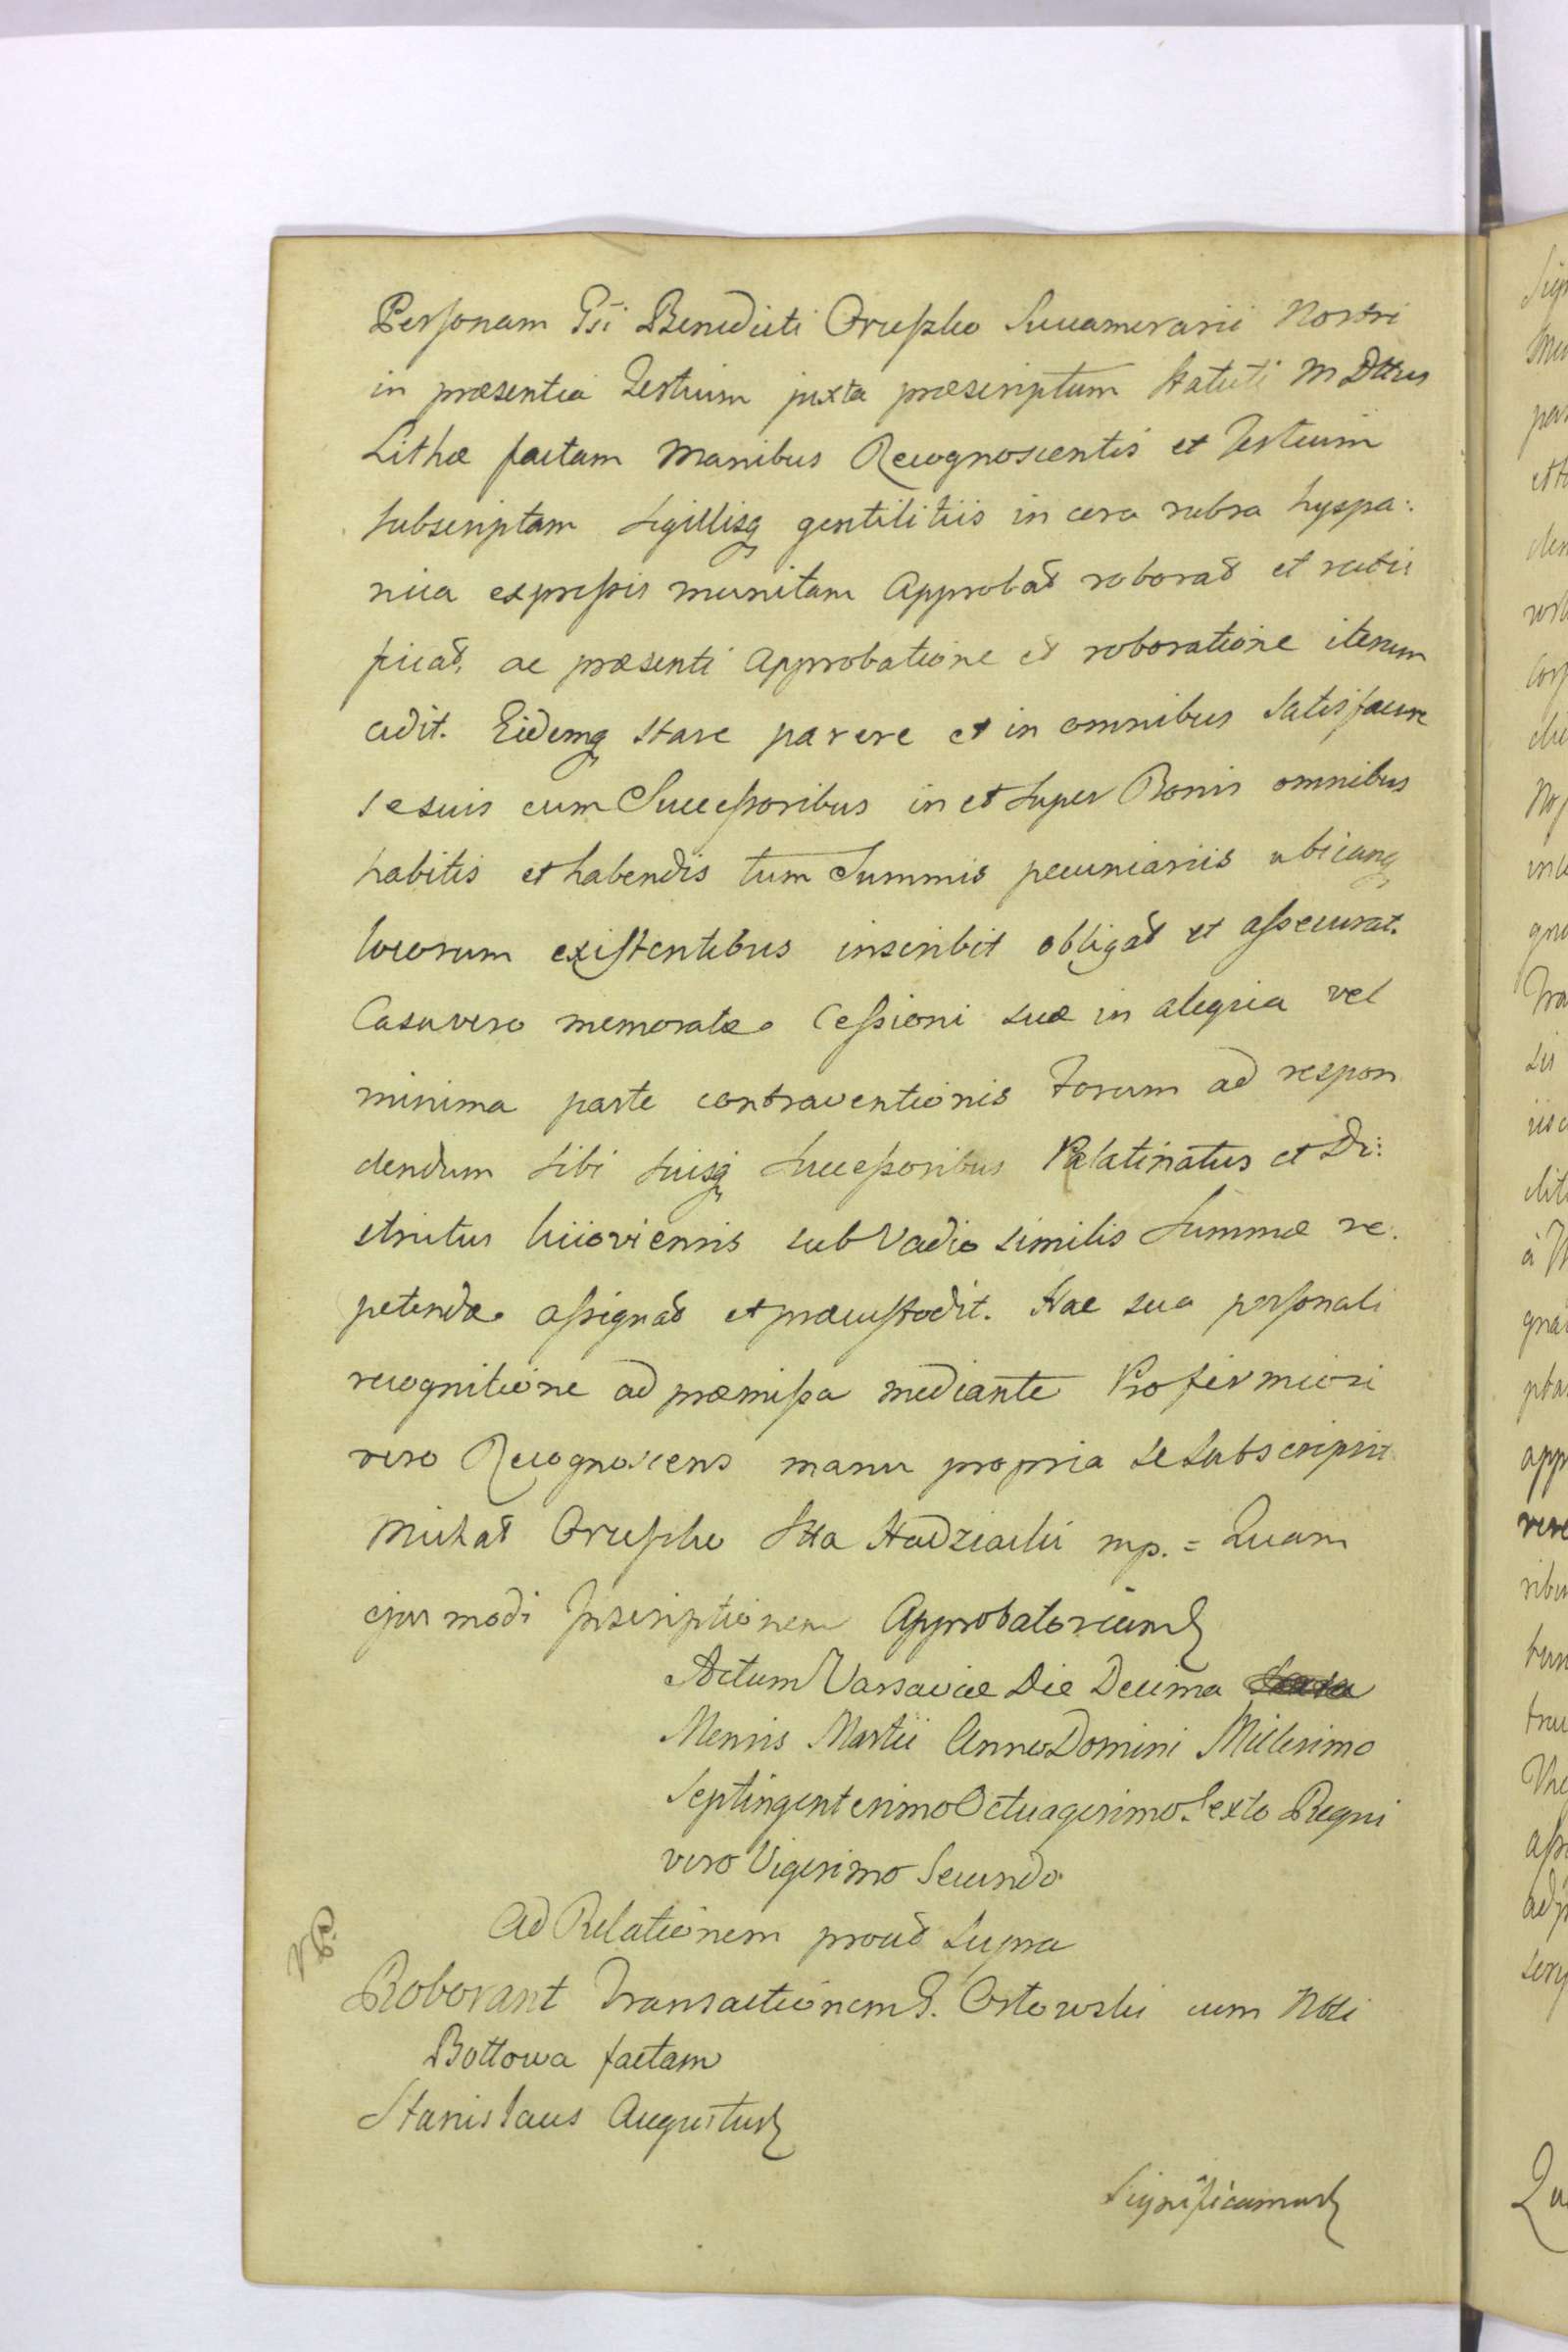 Personam Gsi Benedicti Oruszko Succamerarii Nostri
in præsentia Testium juxta præscriptum Statuti M Dttus
Lithæ factam Manibus Recognoscentis et Testium
subscriptam Sigillisq gentilitiis in cera rubra hyspa:
nica expressis munitam Approbat roborat et ratii
ficat, ac præsenti Approbatione et roboratione iterum
cedit. Eidemq Stare parere et in omnibus Satisfacere
se suis cum Successoribus in et super Bonis omnibus
habitis et habendis tum Summis pecuniariis ubicunq
locorum existentibus inscribit obligat et assecurat.
Casu vero memoratæ Cessioni suæ in aliqua vel
minima parte contraventionis Forum ad respon
dendum sibi suisq Successoribus Palatinatus et Di:
strictus Kiioviensis sub Vadio similis Summæ re:
petendæ assignat et præcustodit. Hac sua personali
recognitione ad præmissa mediante Pro firmiori
vero Recognoscens manu propria se subscripsit
Michał Oruszko Stta Hadziacki mp. = Quam
ejusmodi Inscriptionem Approbatoriam
Actum Varsaviæ Die Decima
Mensis Martii Anno Domini Millesimo
Septingentesimo Octuagesimo Sexto Regni
vero Vigesimo Secundo
Ad Relationem prout supra
Roborant Transactionem G. Ostowski cum Nbli
Bottowa factam
Stanislaus Augustus
Significamus